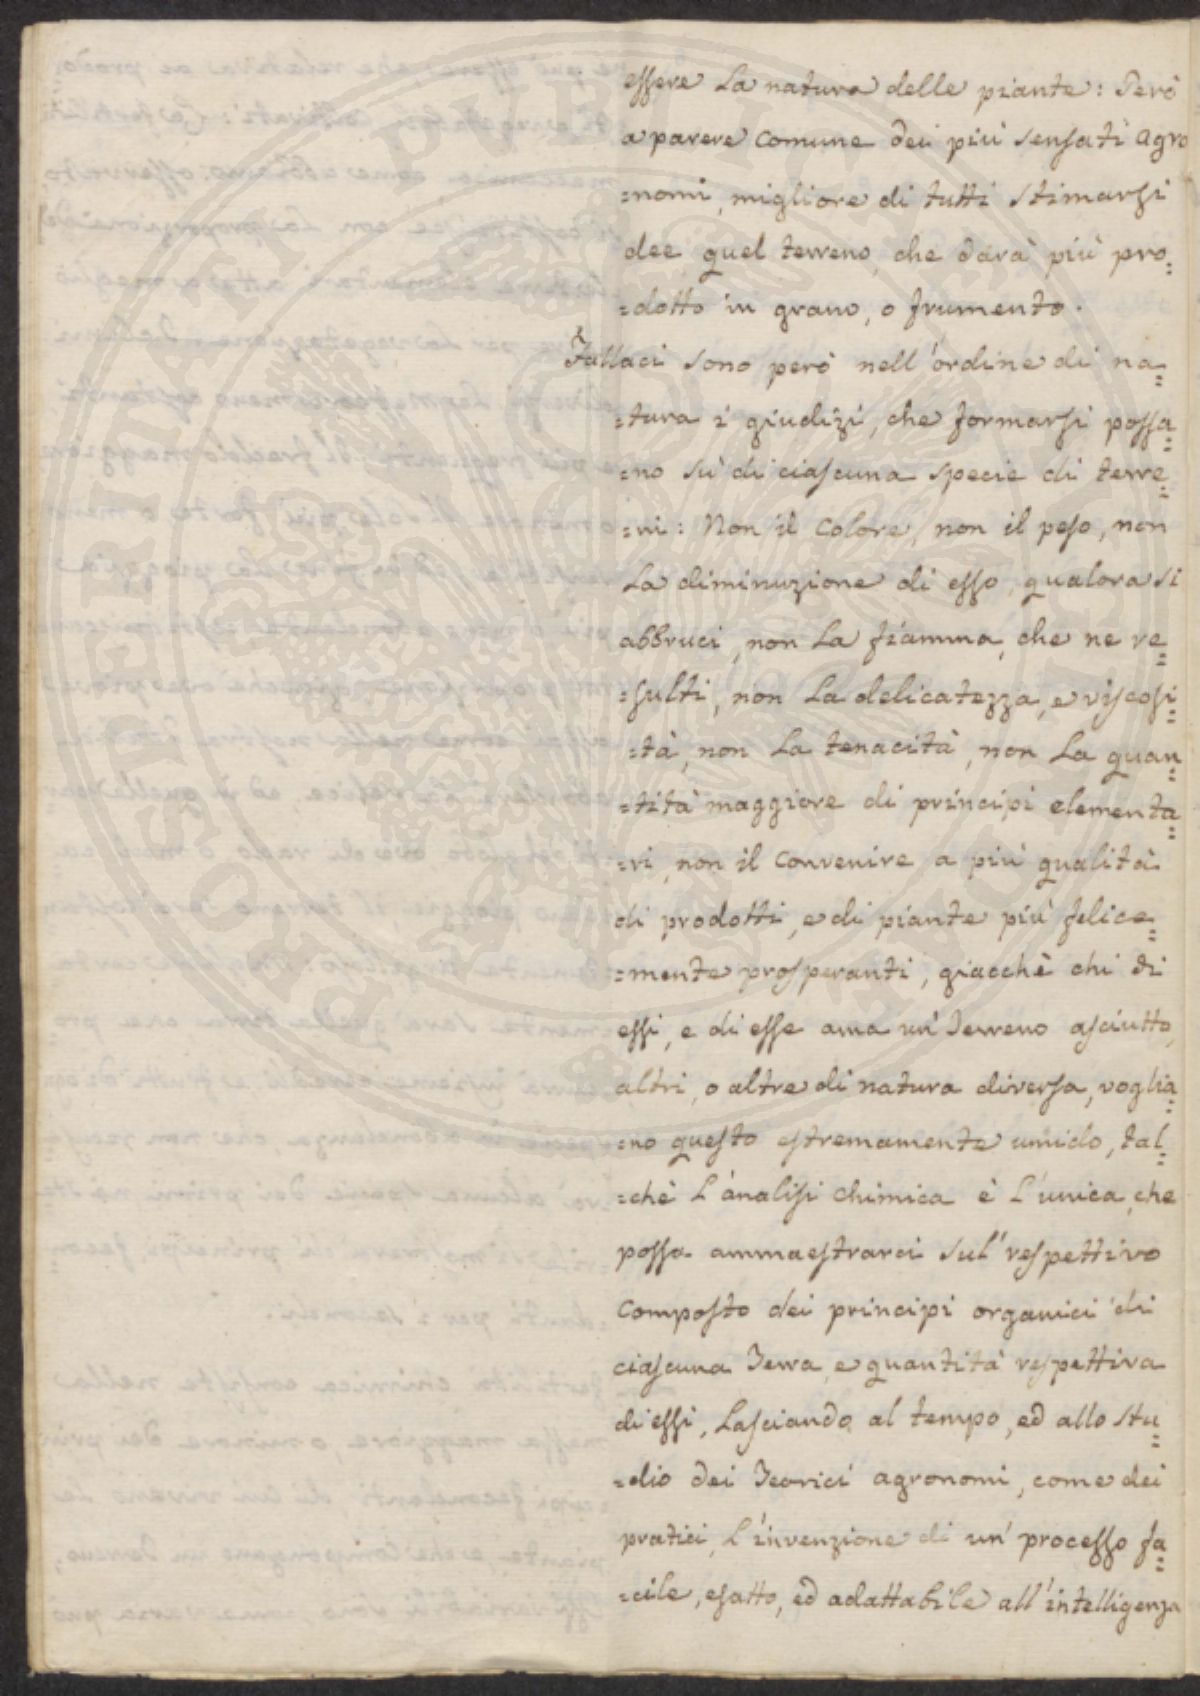 essere La natura delle piante: Però
a parere comune dei più sensati Agro
=nomi, migliore di tutti stimarsi
dee quel terreno, che darà più pro=
=dotto in grano, o frumento.
Fallaci sono però nell'ordine di na=
=tura i giudizi, che formarsi possa=
=no sù di ciascuna specie di terre=
=ni: Non il Colore, non il peso, non
La diminuzione di esso, qualora si
abbruci, non La fiamma, che ne re=
=sulti, non La delicatezza, e viscosi=
=tà, non La tenacità, non La quan=
=tità maggiore di principi elementa=
=ri, non il convenire a più qualità
di prodotti, e di piante più felice=
=mente prosperanti, giacchè chi di
essi, e di esse ama un' Terreno asciutto,
altri, o altre di natura diversa, voglia=
=no questo estremamente umido, tal=
=chè L'analisi Chimica è L'unica, che
possa ammaestrarci sul' respettivo
Composto dei principi organici di
ciascuna Terra, e quantità respettiva
di essi, Lasciando al tempo, ed allo stu=
=dio dei Teorici agronomi, come dei
pratici, L'invenzione di un' processo fa=
=cile, esatto, ed adattabile all'intelligenza